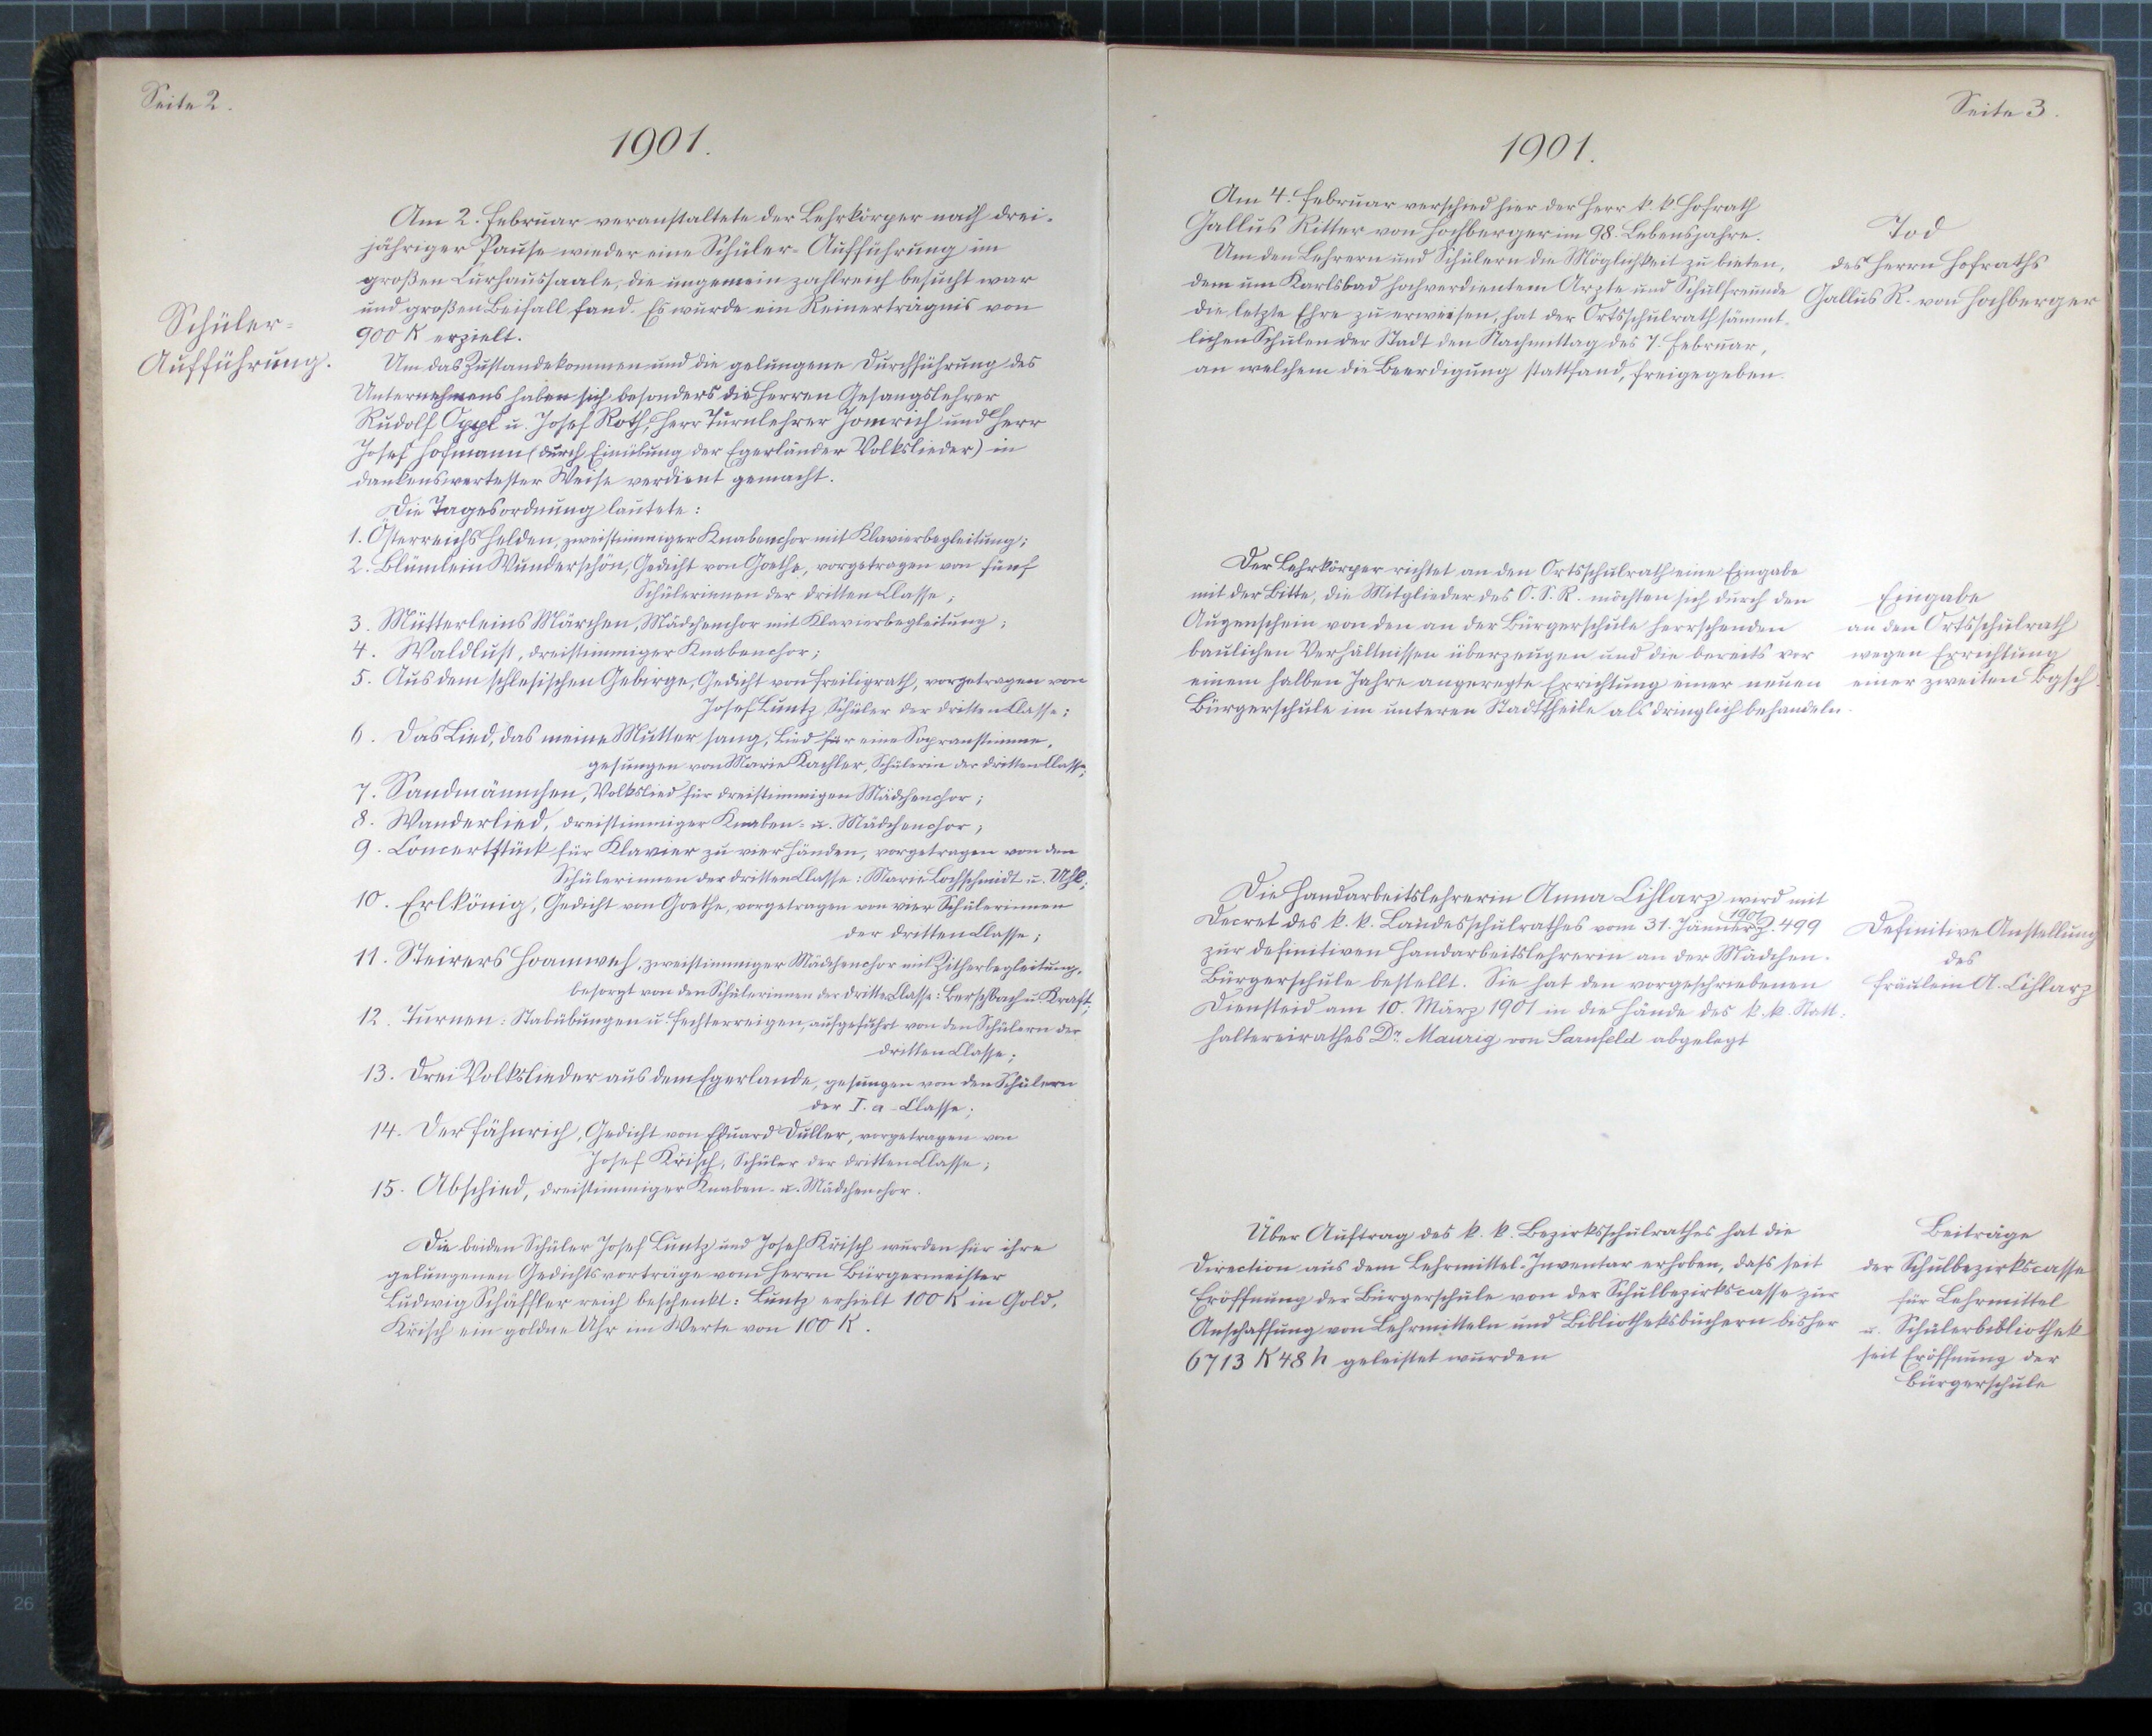 Seite 2.
1901.
Schüler-
Aufführung.
Am 2. Februar veranstaltete der Lehrkörper nach drei-
jähriger Pause wieder eine Schüler-Aufführung im
großen Curhaussaale, die ungemein zahlreich besucht war
und großen Beifall fand. Es wurde ein Reinerträgnis von
900 K erzielt.
Um das Zustandekommen und die gelungene Durchführung des
Unternehmens haben sich besonders die Herren Gesangslehrer
Rudolf Oppl u. Josef Roth, Herr Turnlehrer Jomrich und Herr
Josef Hofmann (durch Einübung der Egerländer Volkslieder) in
dankenswertester Weise verdient gemacht.
Die Tagesordnung lautete:
1. Österreichs Helden, zweistimmiger Knabenchor mit Klavierbegleitung;
2. Blümlein Wunderschön, Gedicht von Goethe, vorgetragen von fünf
Schülerinnen der dritten Classe;
3. Mütterleins Märchen, Mädchenchor mit Klavierbegleitung;
4. Waldlust, dreistimmiger Knabenchor;
5. Aus dem schlesischen Gebirge, Gedicht von Freiligrath, vorgetragen von
Josef Luntz, Schüler der dritten Classe;
6. Das Lied, das meine Mutter sang, Lied für eine Sopranstimme,
gesungen von Marie Kachler, Schülerin der dritten Classe;
7. Sandmännchen, Volkslied für dreistimmigen Mädchenchor;
8. Wanderlied, dreistimmiger Knaben- u. Mädchenchor;
9. Concertstück für Klavier zu vier Händen, vorgetragen von den
Schülerinnen der dritten Classe: Marie Lochschmidt u. Uhl;
10. Erlkönig, Gedicht von Goethe, vorgetragen von vier Schülerinnen
der dritten Classe;
11. Steirers Hoamweh, zweistimmiger Mädchenchor mit Zitherbegleitung,
besorgt von den Schülerinnen der dritten Classe: Berschbach u. Kraft;
12. Turnen: Stabübungen u. Fechterreigen, aufgeführt von den Schülern der
dritten Classe;
13. Drei Volkslieder aus dem Egerlande, gesungen von den Schülern
der I. a - Classe;
14. Der Fähnrich, Gedicht von Eduard Duller, vorgetragen von
Josef Krisch, Schüler der dritten Classe;
15. Abschied, dreistimmiger Knaben- u. Mädchenchor.
Die beiden Schüler Josef Luntz und Josef Krisch wurden für ihre
gelungenen Gedichtsvorträge vom Herrn Bürgermeister
Ludwig Schäffler reich beschenkt: Luntz erhielt 100 K in Gold,
Krisch ein goldne Uhr im Werte von 100 K.
Seite 3.
1901.
Am 4. Februar verschied hier der Herr k. k. Hofrath
Gallus Ritter von Hochberger im 98. Lebensjahre.
Um den Lehrern und Schülern die Möglichkeit zu bieten,
dem um Karlsbad hochverdientem Arzte und Schulfreunde
die letzte Ehre zu erweisen, hat der Ortsschulrath sämmt-
lichen Schulen der Stadt den Nachmittag des 7. Februar,
an welchem die Beerdigung stattfand, freigegeben.
Tod
des Herrn Hofraths
Gallus R. von Hochberger
Der Lehrkörper richtet an den Ortsschulrath eine Eingabe
mit der Bitte, die Mitglieder des O. S. R. möchten sich durch den
Augenschein von den an der Bürgerschule herrschenden
baulichen Verhältnissen überzeugen und die bereits vor
einem halben Jahre angeregte Errichtung einer neuen
Bürgerschule im unteren Stadttheile als dringlich behandeln.
Eingabe
an den Ortsschulrath
wegen Errichtung
einer zweiten Bgsch.
Die Handarbeitslehrerin Anna Cihlarz wird mit
Decret des k. k. Landesschulrathes vom 31. Jänner 1901 Z. 499
zur definitiven Handarbeitslehrerin an der Mädchen-
Bürgerschule bestellt. Sie hat den vorgeschriebenen
Diensteid am 10. März 1901 in die Hände des k. k. Statt-
haltereirathes Dr. Maurig von Sarnfeld abgelegt
Definitive Anstellung
des
Fräulein A. Cihlarz
Über Auftrag des k. k. Bezirksschulrathes hat die
Direction aus dem Lehrmittel-Inventar erhoben, dass seit
Eröffnung der Bürgerschule von der Schulbezirkscasse zur
Anschaffung von Lehrmitteln und Bibliotheksbüchern bisher
6713 K 48 h geleistet wurden
Beiträge
der Schulbezirkscasse
für Lehrmittel
u. Schülerbibliothek
seit Eröffnung der
Bürgerschule
26
30